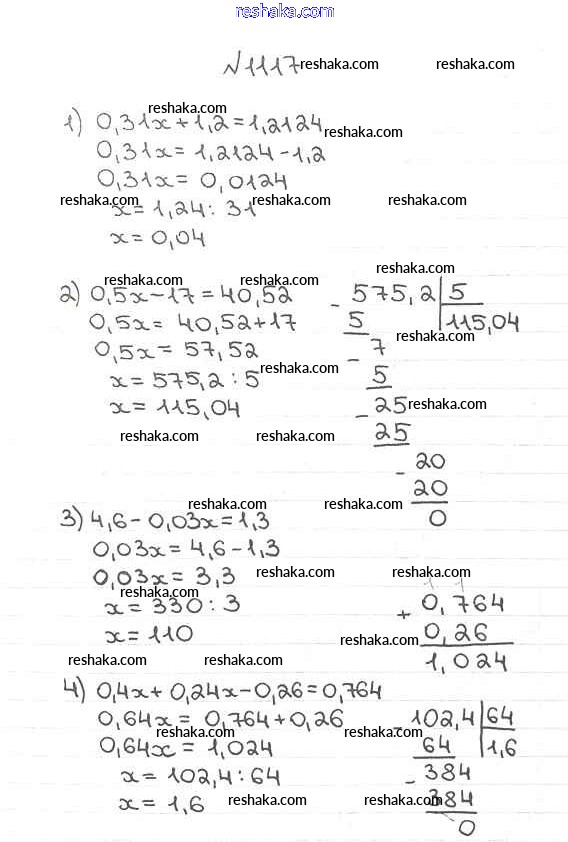 reshaka.com
№1117 reshaka.com reshaka.com
reshaka.com
1) 0,31x+1,2=1,2124
reshaka.com
0,31x=1,2124-1,2
0,31x=0,0124
reshaka.com reshaka.com reshaka.com
x=1,24:31
x=0,04
reshaka.com
reshaka.com reshaka.com
2) 0,5x-17=40,52
0,5x=40,52+17
0,5x=57,52
reshaka.com
x=575,2:5
x=115,04
reshaka.com reshaka.com
- 575,2 5
5 115,04
reshaka.com
- 7
5
- 25 reshaka.com
25
- 20
20
0
reshaka.com reshaka.com
3) 4,6-0,03x=1,3
0,03x=4,6-1,3
0,03x=3,3
reshaka.com reshaka.com
reshaka.com
x=330:3
x=110
1 1
+ 0,764
0,26
reshaka.com
1,024
reshaka.com reshaka.com
4) 0,4x+0,24x-0,26=0,764
0,64x=0,764+0,26
reshaka.com reshaka.com
0,64x=1,024
x=102,4:64
x=1,6
reshaka.com reshaka.com
- 102,4 64
64 1,6
- 384
384
0